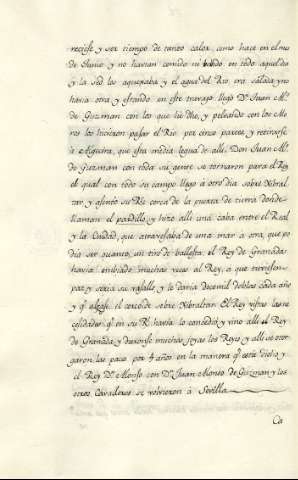 reciese y ser tiempo de tanto calor como hace en el mes
de Junio y no havian comido ni bebido en todo aquel dia
y la sed los aquexaba y el agua del Rio era salada y no
havia otra y estando en este travajo llego Dn. Juan Ms.
de Guzman con los que he dho, y peleando con los Mo
ros los hicieron pasar el Rio por cinco partes y retirarse
à Algecira, que esta media legua de alli. Don Juan Ms.
de Guzman con toda su gente se tornaron para el Rey
el qual con todo su campo llego à otro dia sobre Gibral
tar y asento su Rl. cerca de la puerta de tierra donde
llaman el pardillo y hizo alli una caba entre el Real
y la Ciudad, que atravesaba de una mar a otra, que po
dia ser quanto un tiro de ballesta. el Rey de Granada
havia embiado muchas veces al Rey, a que tuviesen
paz y seria su vasallo y le daria doce mil doblas cada año
y qe. alzase el cerco de sobre Gibraltar. El Rey vistas las ne
cesidades qe. en su Rl. havia lo concedio y vino alli el Rey
de Granada y dieronse muchas joyas los Reyes y alli se otor
garon las paces por 4 años en la manera qe. esta dicho y
el Rey Dn. Alonso con Dn. Juan Alonso de Guzman y los
otros Cavalleros se volvieron à Sevilla
Ca